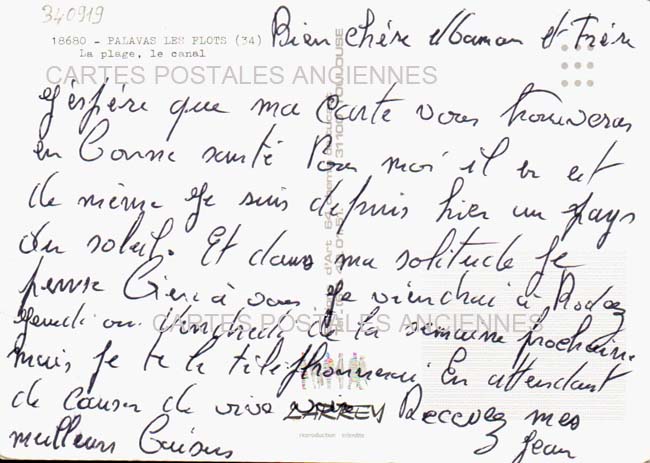 340919
18680 - PALAVAS LES FLOTS (34)
La plage, le canal
Bien chère Maman et Frère
CARTES POSTALES ANCIENNES
J'espère que ma Carte vous trouveras
en Bonne santé Pour moi il en est
de même Je suis depuis hier au pays
du soleil. Et dans ma solitude Je
pense Bien à vous Je viendrai à Rodez
Jeudi ou Vendredi de la semaine prochaine
CARTES POSTALES ANCIENNES
mais Je te le téléphonerai En attendant
de causer de vive voix Recevez mes
meilleurs Baisers Jean
LARREY
reproduction interdite